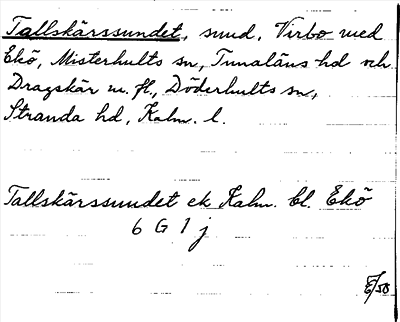 Tallskärssundet, sund, Virbo med
Ekö, Misterhults sn, Tunaläns hd och
Dragskär m. fl., Döderhults sn,
Stranda hd, Kalm. l.
Tallskärssundet ek Kalm. bl. Ekö
6 G 1 j
E/58